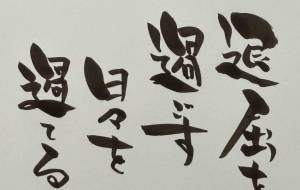 退屈を
過ごす
日々を
過てる